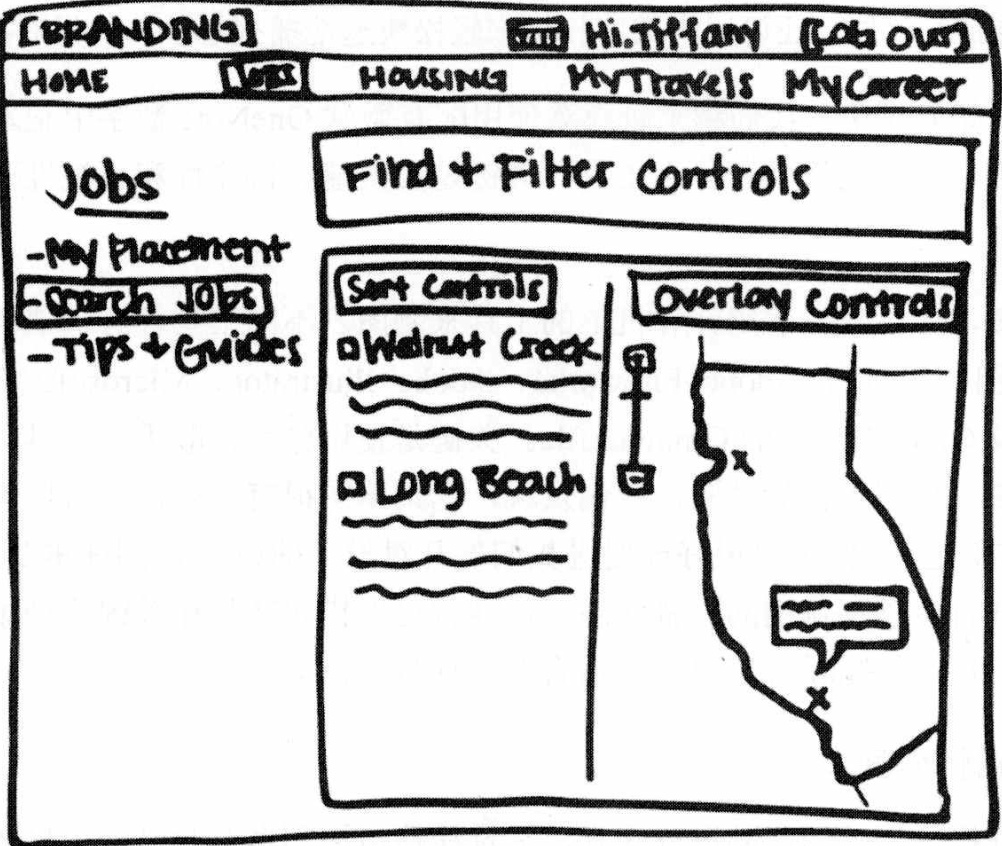 [BRANDING] Hi, Tiffany [LOG OUT]
HOME JOBS HOUSING MyTravels MyCareer
Jobs
- My Placement
- Search Jobs
- Tips + Guides
Find + Filter controls
Sort Controls
Walnut Creek
Long Beach
Overlay Controls
+
-
x
x